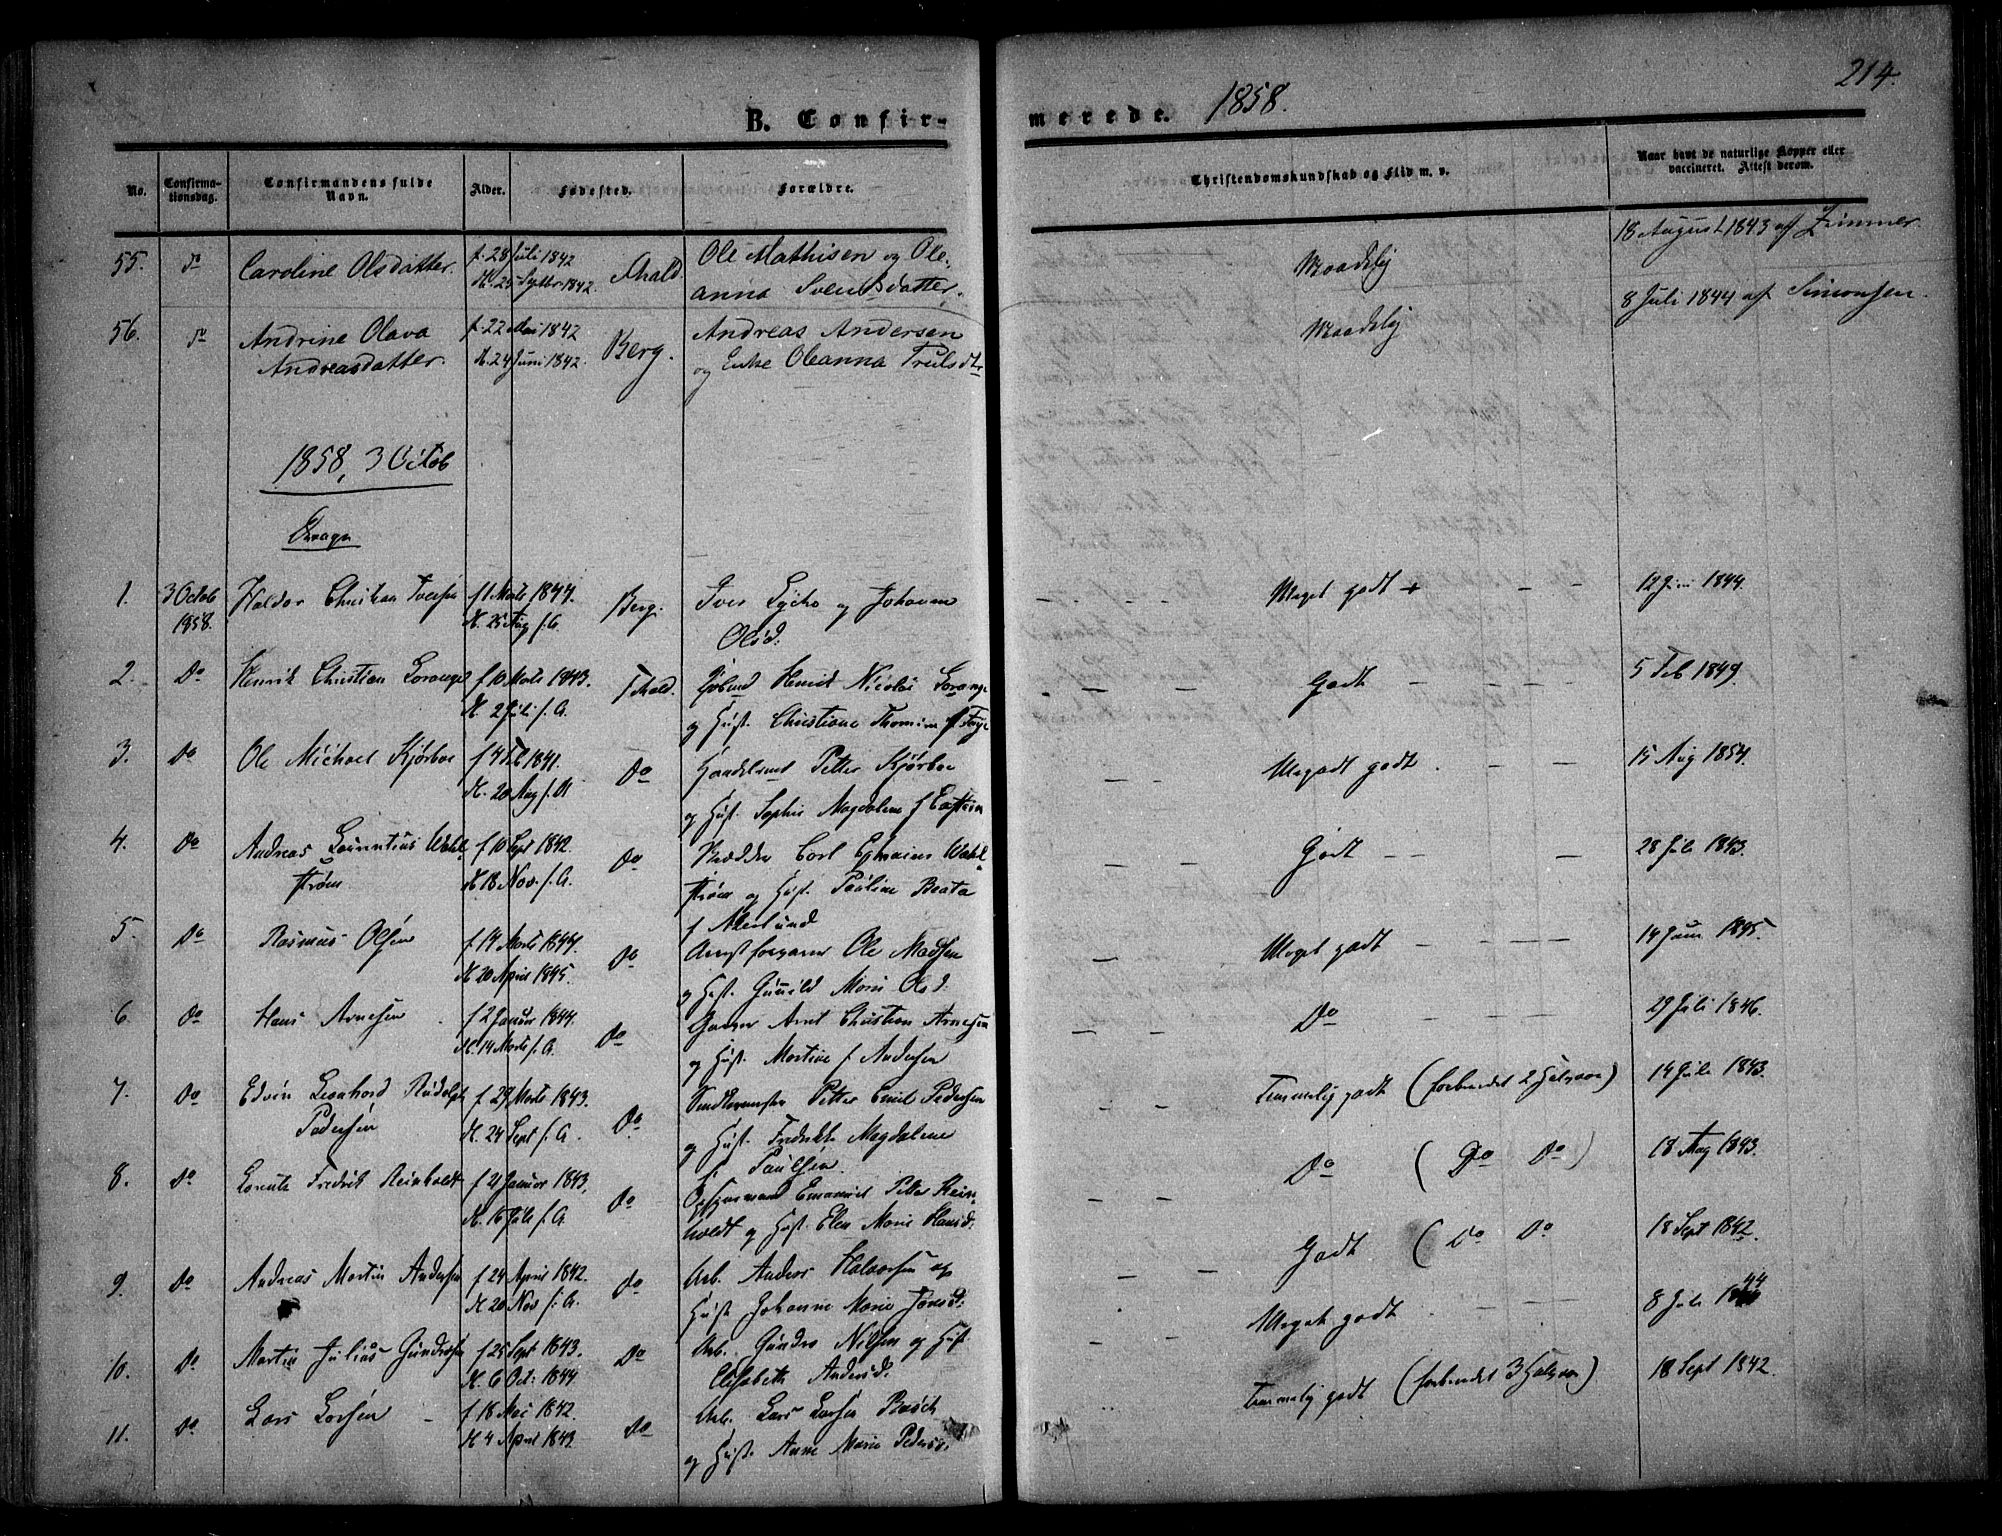 214.
B. Confir-
merede. 1858.
No.
Confirma-
tionsdag.
Confirmandens fulde
Navn.
Alder.
Fødested.
Forældre.
Christendomskundskab og Flid m. v.
Naar havt de naturlige Kopper eller
vaccineret. Attest derom.
55. do Caroline Olsdatter. f. 28 Juli 1842 Ole Mathisen og Ole- Maadelig 18 August 1843 af Zimmer.
d. 25 Septbr 1842. Fhald anna Svensdatter.
56. do Andrine Olava f. 22 Mai 1842 Andreas Andersen Maadelig 8 Juli 1844 af Simonsen.
Andreasdatter. d. 24 Juni 1842. Berg. og Enke Oleanna Trulsdtr
1858, 3 Octob
Drenge
1. 3 Octob Haldor Christian Iversen f 1 Marts 1844. Berg. Iver Lycho og Johanne Meget godt + 12 Juni 1844.
1858. d. 25 Aug s. A. Olsd.
2. Do Henrik Christian Sorange f 10 Marts 1843. Fhald. Henrik Nicolai Sorange Godt 5 Feb 1849.
d. 2 Juli s. A. og Hust. Christiane Thomine f Frye
3. Do Ole Michael Kjørboe f 4 Feb 1841. Do Handelsmd Petter Kjørboe Megedt godt 15 Aug 1854.
d. 20 Aug s. A. og Hust. Sophie Magdalene f
4. Do Andreas Laurentius Wahl- f 10 Sept 1842. Do Carl Ephraim Wahl- Godt 28 Juli 1843.
strøm d. 18 Nov. s. A. strøm og Hust. Pauline Beata
f Akerlund
5. Do Rasmus Olsen f 14 Marts 1844. Do Ole Madsen Meget godt 14 Juni 1845.
d. 20 April 1845. og Hust. Gunild Marie Olsd.
6. Do Hans Arnesen f 2 Januar 1844. Do Garver Arnt Christian Arnesen Do 29 Juli 1846.
d. 14 Marts s. A. og Hust. Martine f Andersen
7. Do Edvin Leonhard Rudolph f 29 Marts 1843. Do Petter Emil Pedersen Temmelig godt (forbundet 2 Halvaar) 14 Juli 1843.
Pedersen d. 24 Sept s. A. og Hust. Fredrikke Magdalene
f Paulsen.
8. Do Lorentz Fredrik Reinholdt f 21 Januar 1843, Do Opsynsmand Emanuel Petter Rein- Do ( Do Do ) 18 Aug 1843.
d. 16 Juli s. A. holdt og Hust. Elen Marie Hansd.
9. Do Andreas Martin Andersen f 24 April 1842. Do Arb. Anders Halvorsen og Godt ( Do Do 18 Sept 1842.
d. 20 Nov s. A. Hust Johanne Marie Jonsd.
10. Do Martin Julius Gundersen f 25 Sept 1843. Do Arb. Gunder Nilsen og Hust. Meget godt 8 Juli 1844
d. 6 Oct. 1844. Elisabeth Andersd.
11. Do Lars Larsen f 18 Mai 1842. Do Arb. Lars Larsen Busch Temmelig godt (forbundet 3 Halvaar) 18 Sept 1842.
d 4 April 1843. og Hust. Anne Marie Pedersd.